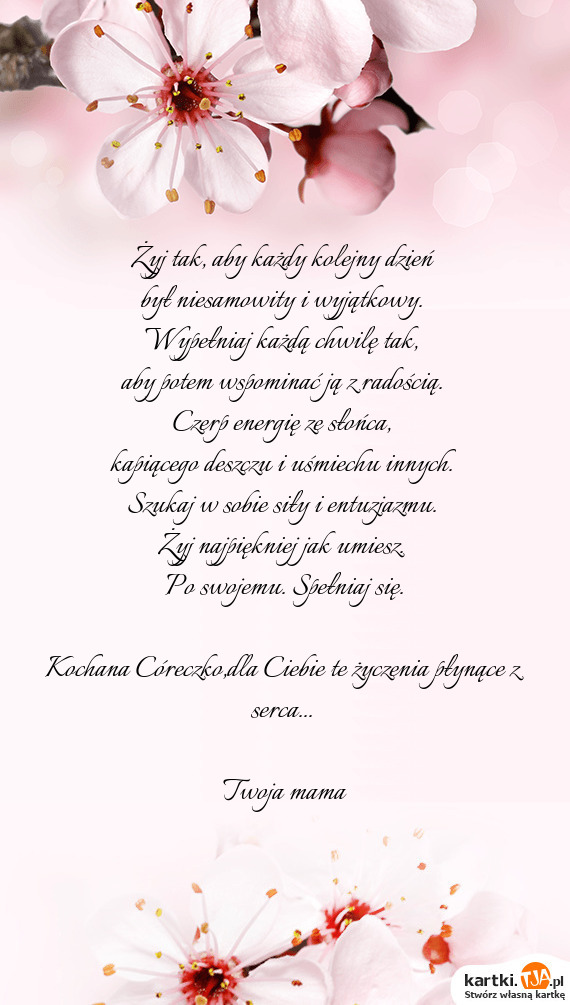 Żyj tak, aby każdy kolejny dzień
był niesamowity i wyjątkowy.
Wypełniaj każdą chwilę tak,
aby potem wspominać ją z radością.
Czerp energię ze słońca,
kapiącego deszczu i uśmiechu innych.
Szukaj w sobie siły i entuzjazmu.
Żyj najpiękniej jak umiesz.
Po swojemu. Spełniaj się.
Kochana Córeczko,dla Ciebie te życzenia płynące z
serca...
Twoja mama
kartki.TJA.pl
Stwórz własną kartkę